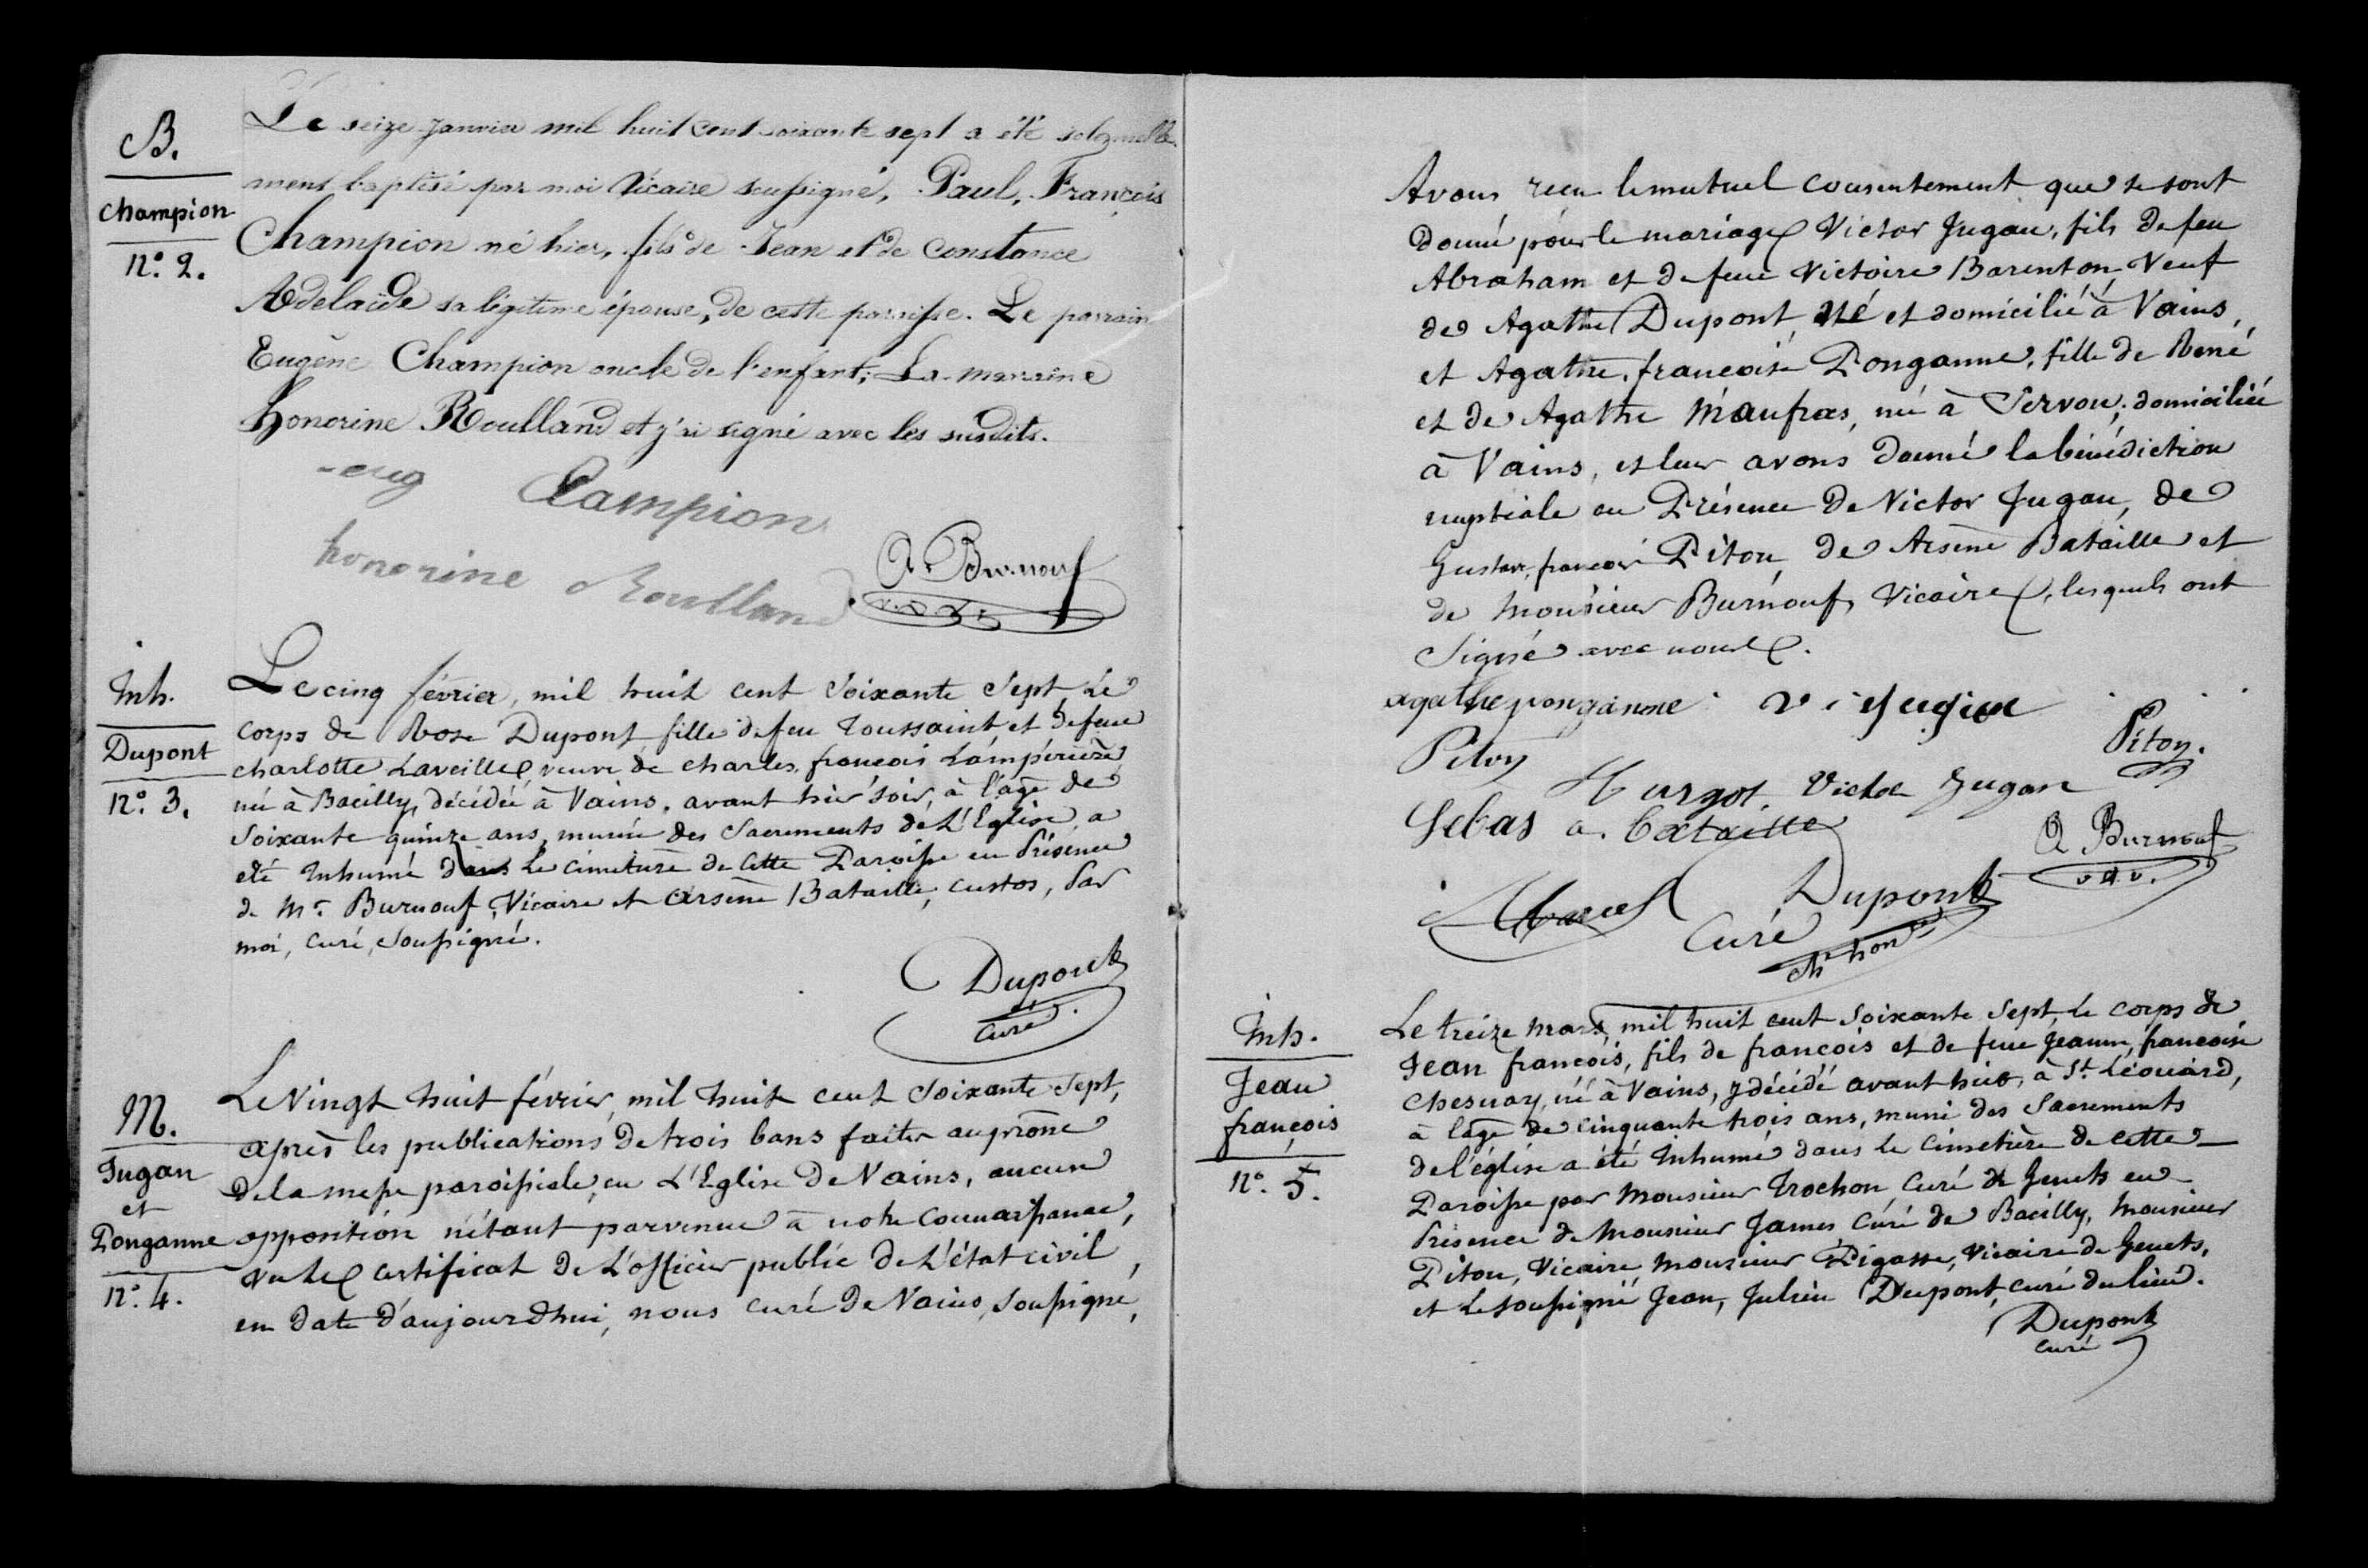 B.
Champion
n°. 2.
Le seize janvier mil huit cent soixante sept a été solennelle
ment baptisé par moi Vicaire soussigné, Paul, François
Champion né hier, fils de Jean et de Constance
Adelaïde sa légitime épouse, de cette paroisse. Le parrain
Eugène Champion oncle de l'enfant; La marraine
Honorine Roulland et j'ai signé avec les susdits.
eug Campion
honorine Roulland
A. Burnouf
Inh.
Dupont
n°. 3.
Le cinq février, mil huit cent soixante sept, Le
corps de Rose Dupont fille de feu Toussaint, et de feue
charlotte Laveille, veuve de charles, françois Lampérière
né à Bacilly, décédée à Vains, avant hier soir, à l'âge de
soixante quinze ans, munie des Sacrements de L'Eglise, a
été Inhumé dans Le cimetière de Cette Paroisse en Présence
de Mr. Burnouf, Vicaire et Arsène Bataille, custos, Par
moi, curé, soussigné.
Dupont
curé
M.
Jugan
et
Ponganne
n°. 4.
Le Vingt huit février, mil huit cent soixante sept,
après les publications de trois bans faites au prône
de la messe paroissiale, en L'Eglise De Vains, aucune
opposition n'étant parvenue à notre connaissance,
vu Le certificat de L'officier public de L'état civil,
en date d'aujourdhui, nous curé De Vains, soussigné,
Avons reçu le mutuel consentement que se sont
donné pour le mariage Victor Jugan, fils de feu
Abraham et de feue Victoire Barenton, Veuf
de Agathe Dupont, né et domicilié à Vains,
et Agathe, françoise Ponganne, fille de René
et de Agathe Maufras, né à Servon; domiciliée
à Vains, et leur avons donné la bénédiction
nuptiale en Présence De Victor Jugan, de
Gustave, françois Piton, de Arsène Bataille et
de Monsieur Burnouf, Vicaire, lesquels ont
Signé avec nous.
agathe ponganne v. jugan
Piton
Victor Jugan
Piton.
a. bataille
A Burnouf
Dupont
Curé
ch. hon
Inh.
Jean
françois
n°. 5.
Le treize mars, mil huit cent soixante sept, Le corps de
Jean françois, fils de françois et de feue Jeanne, françoise
Chesnay, né à Vains, y décédé avant hier, à St. Léonard,
à l'âge de cinquante trois ans, muni des Sacrements
de l'église a été Inhumé dans Le cimetière de cette
Paroisse par Monsieur Trochon, Curé de Genets en
Présence de Monsieur James Curé de Bacilly, Monsieur
Piton, Vicaire, Monsieur Pigasse, Vicaire de Genets,
et Le soussigné Jean, Julien Dupont, curé du lieu.
Dupont
curé